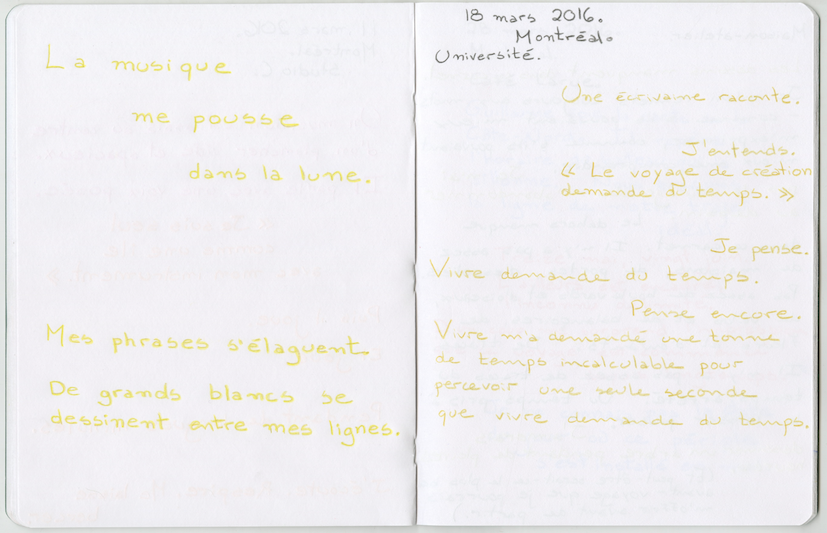 La musique
me pousse
dans la lune.
Mes phrases s'élaguent.
De grands blancs se
dessinent entre mes lignes.
18 mars 2016.
Montréal.
Université.
Une écrivaine raconte.
J'entends.
« Le voyage de création
demande du temps. »
Je pense.
Vivre demande du temps.
Pense encore.
Vivre m'a demandé une tonne
de temps incalculable pour
percevoir une seule seconde
que vivre demande du temps.